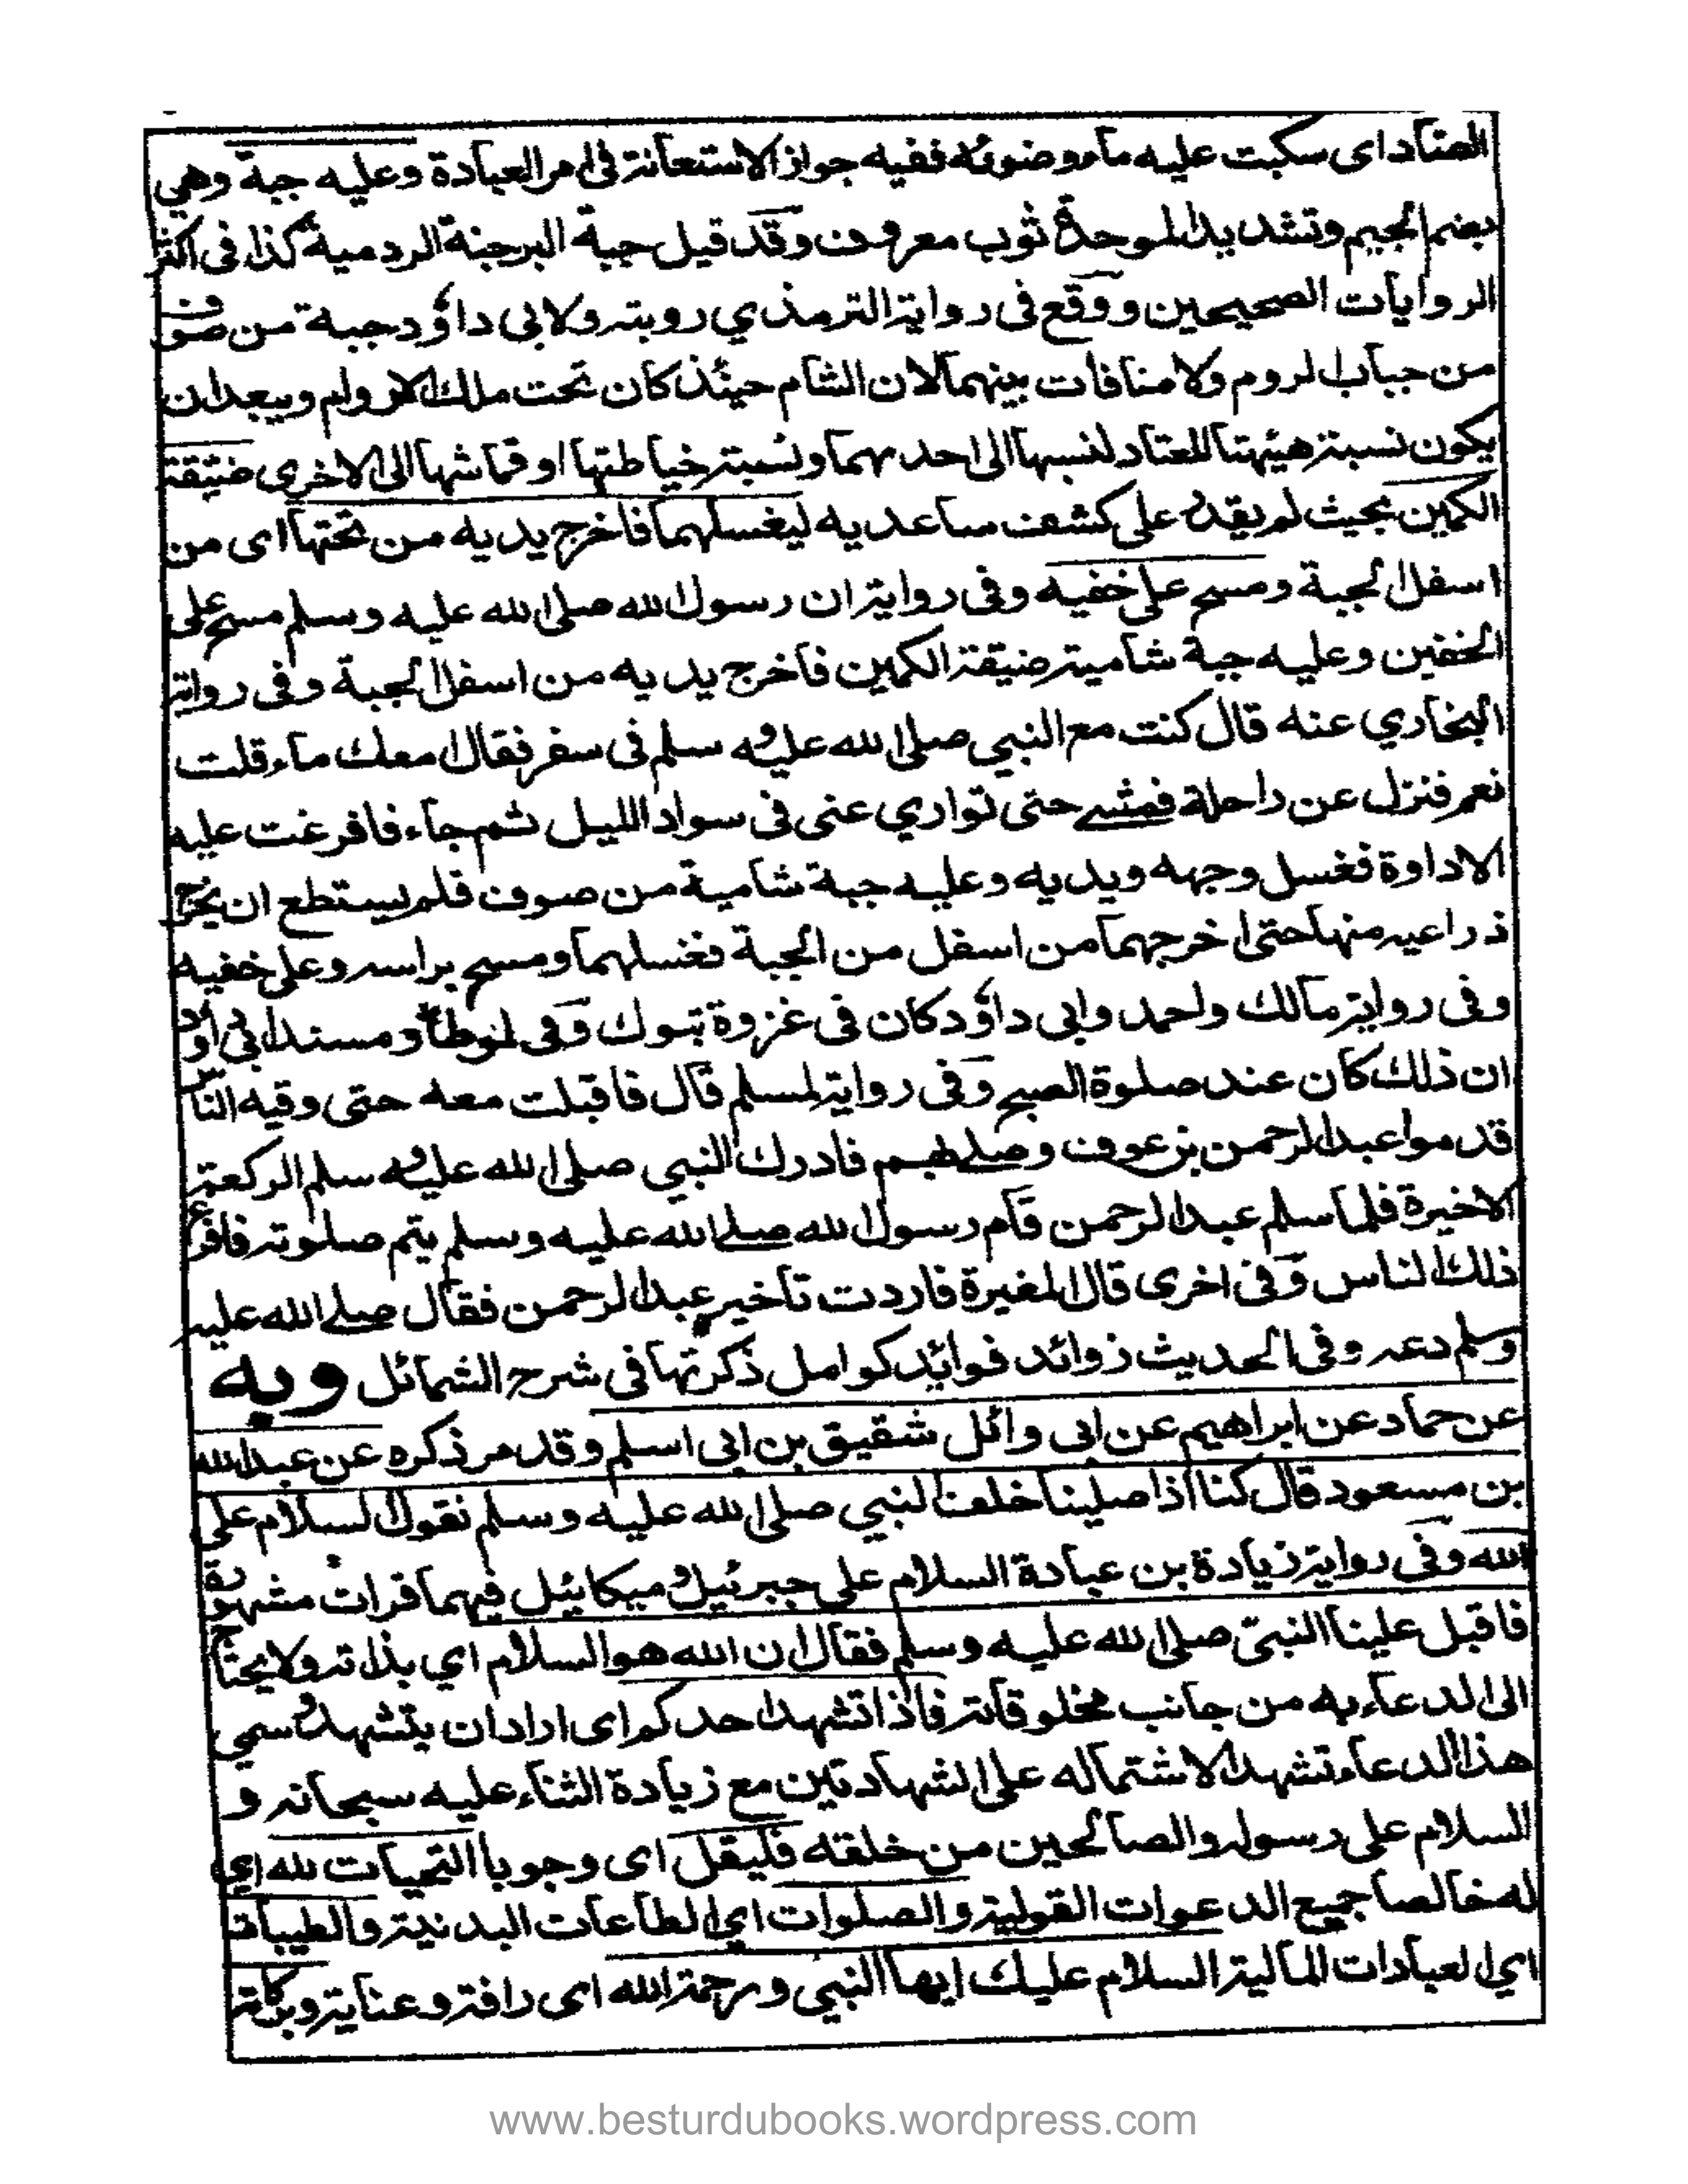 الضاد اى سكبت عليه ماء وضوئه ففيه جواز الاستعانة فى امر العبادة وعليه جبة وهي
بضم الجيم وتشديد الموحدة ثوب معروف وقد قيل جبة البرجنة الردمية كذا فى اكثر
الروايات الصحيحين ووقع فى رواية الترمذي روبته ولابى داؤد جبة من صوف
من جباب الروم ولا منافات بينهما لان الشام حينئذ كان تحت ملك الاروام ويبعد ان
يكون نسبة هيئتها للعتاد لنسبها الى احدهما ونسبة خياطتها او قماشها الى الاخرى ضيقة
الكمين بحيث لم يقدر على كشف ساعديه ليغسلهما فاخرج يديه من تحتها اى من
اسفل الجبة ومسح على خفيه وفى رواية ان رسول الله صلى الله عليه وسلم مسح على
الخفين وعليه جبة شامية ضيقة الكمين فاخرج يديه من اسفل الجبة وفى رواية
البخاري عنه قال كنت مع النبي صلى الله عليه وسلم فى سفر فقال امعك ماء قلت
نعم فنزل عن راحلة فمشے حتى تواري عنى فى سواد الليل ثم جاء فافرغت عليه
الاداوة فغسل وجهه ويديه وعليه جبة شامية من صوف فلم يستطع ان يخرج
ذراعيه منها حتى اخرجهما من اسفل من الجبة فغسلهما ومسح براسه وعلى خفيه
وفى رواية مالك واحمد وابى داؤد كان فى غزوة تبوك وفى الموطأ ومسند ابى داؤد
ان ذلك كان عند صلوة الصبح وفى رواية لمسلم قال فاقبلت معه حتى وقيه الناس
قدموا عبد الرحمن بن عوف وصلے بهم فادرك النبي صلى الله عليه وسلم الركعة
الاخيرة فلما سلم عبد الرحمن قام رسول الله صلے الله عليه وسلم يتم صلوته فافزع
ذلك الناس وفى اخرى قال المغيرة فاردت تأخير عبد الرحمن فقال صلے الله عليه
وسلم دعه وفى الحديث زوائد فوائد كوامل ذكرتها فى شرح الشمائل وبه
عن حماد عن ابراهيم عن ابى وائل شقيق بن ابى اسلم وقد مر ذكره عن عبد الله
بن مسعود قال كنا اذا صلينا خلف النبي صلى الله عليه وسلم نقول السلام على
الله وفى رواية زيادة بن عبادة السلام على جبرئيل وميكائيل فيهما قرات مشهورة
فاقبل علينا النبى صلى الله عليه وسلم فقال ان الله هو السلام اي بذاته ولا يحتاج
الى الدعاء به من جانب مخلوقاته فاذا تشهد احدكم اى اراد ان يتشهد وسمي
هذا الدعاء تشهدا لاشتماله على الشهادتين مع زيادة الثناء عليه سبحانه و
السلام على رسوله والصالحين من خلقه فليقل اى وجوبا التحيات لله اي
له خالصا جميع الدعوات القولية والصلوات اي الطاعات البدنية والطيبات
اي العبادات المالية السلام عليك ايها النبي ورحمة الله اى رافة وعناية وبركاته
www.besturdubooks.wordpress.com